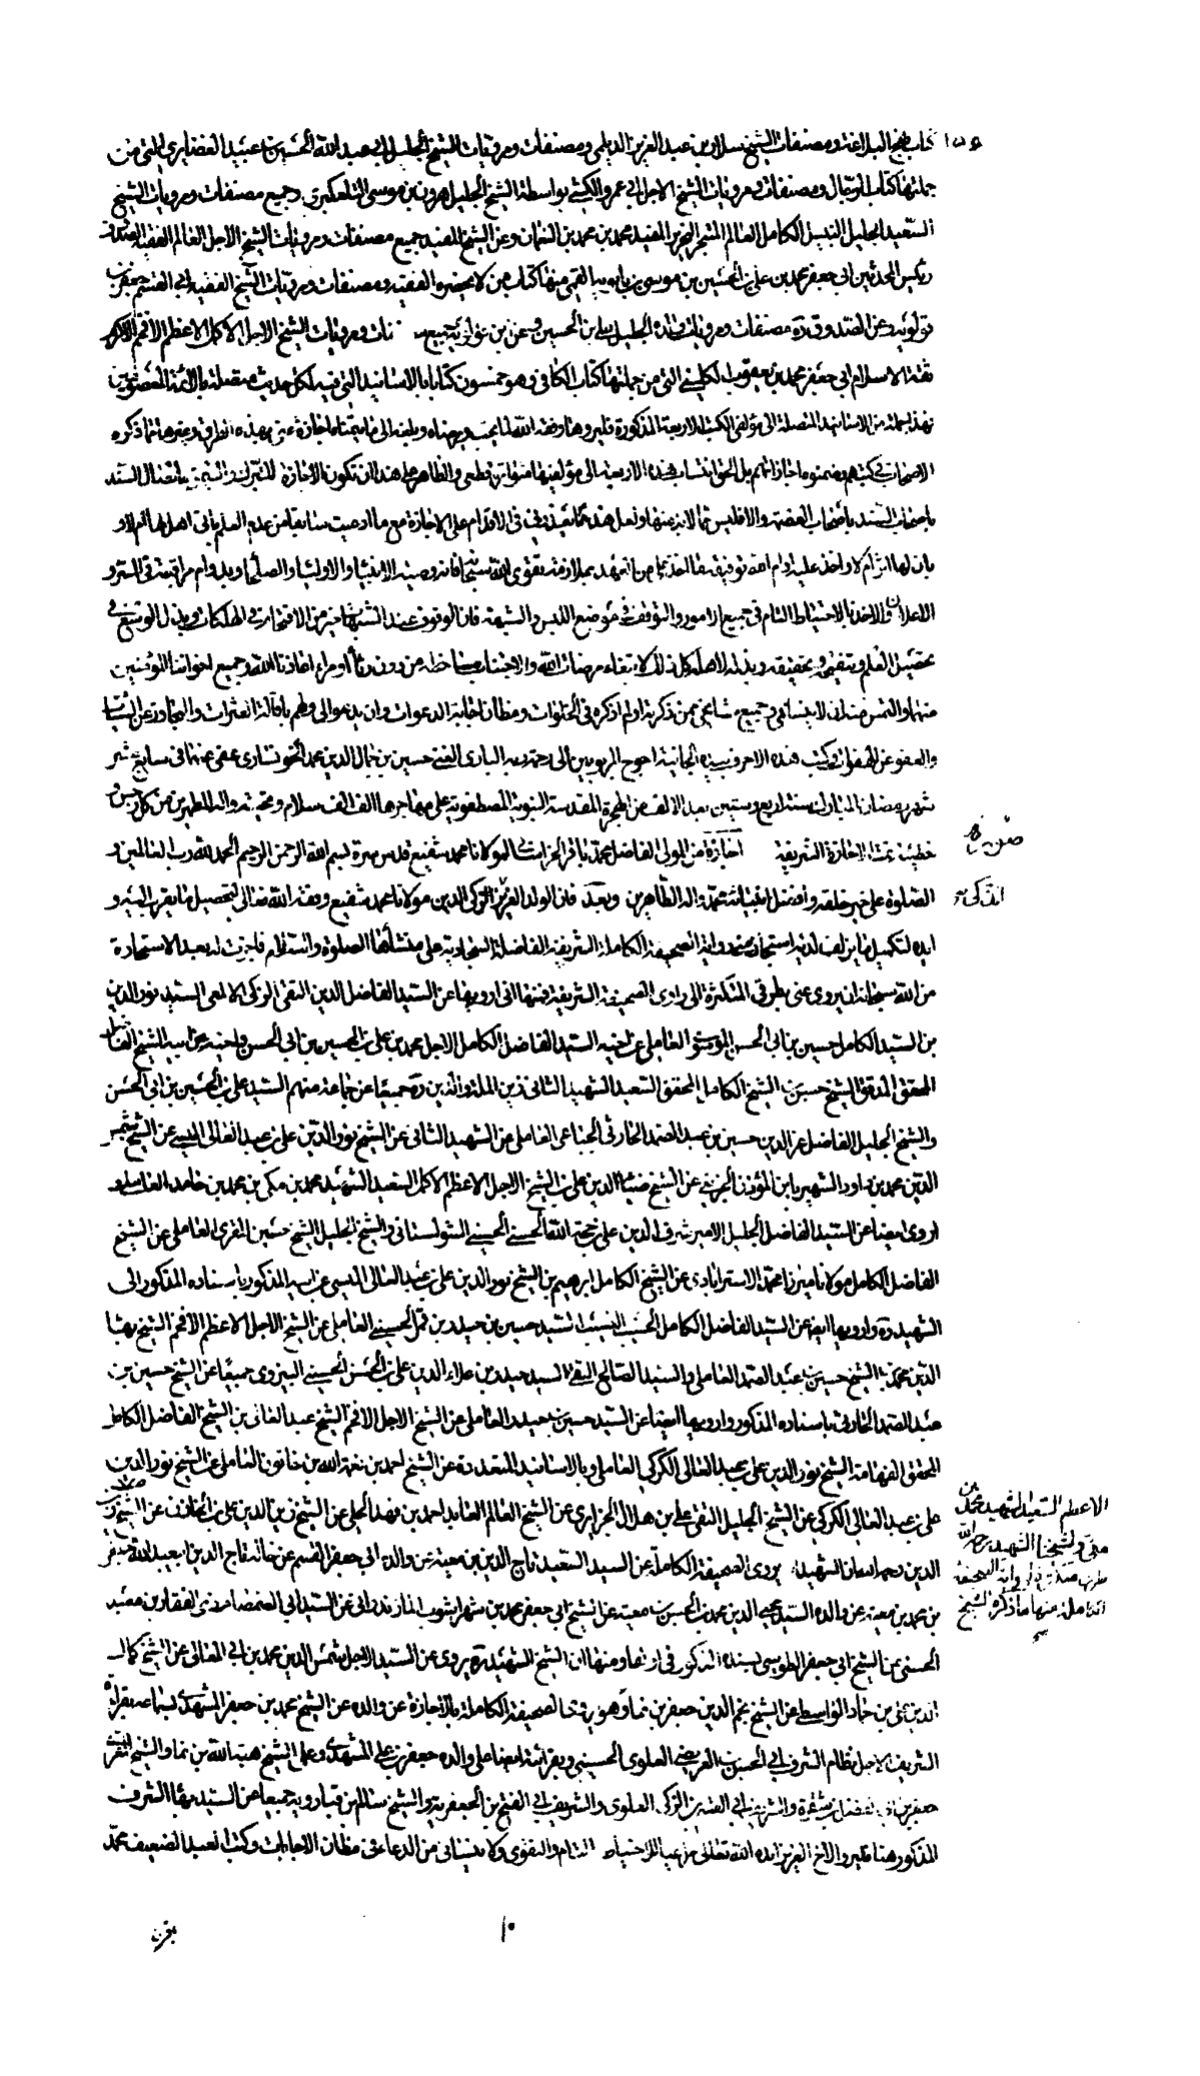 كتاب نهج البلاغة ومصنفات الشيخ سلار بن عبد العزيز الديلمي ومصنفات ومرويات الشيخ الجليل ابي عبد الله الحسين بن عبيد الله الغضايري التي من
جملتها كتاب الرجال ومصنفات ومرويات الشيخ الاجل ابي عمرو الكشي بواسطة الشيخ الجليل هرون بن موسى التلعكبري وجميع مصنفات ومرويات الشيخ
السعيد الجليل النبيل الكامل العالم المتبحر النحرير المفيد محمد بن محمد بن النعمان وعن الشيخ المفيد جميع مصنفات ومرويات الشيخ الاجل العالم الفقيه الصدوق
رئيس المحدثين ابي جعفر محمد بن علي بن الحسين بن موسى بن بابويه القمي منها كتاب من لا يحضره الفقيه ومصنفات ومرويات الشيخ الفقيه ابي القسم جعفر بن
قولويه وعن الصدوق ره مصنفات ومرويات والده الجليل علي بن الحسين وعن بن قولويه جميع ومرويات الشيخ الاجل الاكمل الاعظم الافخم الاكرم
ثقة الاسلام ابي جعفر محمد بن يعقوب الكليني التي من جملتها كتاب الكافي وهو خمسون كتابا بالاسانيد التي فيه لكل حديث متصلة بالائمة المعصومين
فهذه جملة من الاسانيد المتصلة الى مؤلفي الكتب الاربعة المذكورة فليروها وفقه الله لما يحب ويرضاه وبلغه الى ما يتمناه اجازة عني بهذه الطرق وغيرها مما ذكره
الاصحاب في كتبهم وضمنوه اجازاتهم بل الحق انتساب هذه الاربعة الى مؤلفيها متواتر قطعي والظاهر على هذا ان تكون الاجازة للتبرك والتيمن باتصال السند
باصحاب العصمة والا فليس مما لابد منها ولعل هذا مما يعذرني في الاقدام على الاجازة مع ما ادعيت سابقا من عدم العلم باني اهل لها ام لا و
بان لها التزام لا واخذ عليه دام الله توفيقه ما اخذ علي من العهد بملازمة تقوى الله سبحانه فانه وصية الانبياء والاولياء والصلحاء وبدوام مراقبته في السر و
الاعلان والاخذ بالاحتياط التام في جميع الامور والتوقف في موضع اللبس والشبهة فان الوقوف عند الشبهات خير من الاقتحام في الهلكات وبذل الوسع في
تحصيل العلم وتنقيحه وتحقيقه وبذله لاهله كل ذلك لابتغاء مرضات الله والاجتناب عن مساخطه من دون رئاء او مراء اعاذنا الله وجميع اخواننا المؤمنين
منها والتمس منه ان لا ينساني وجميع مشايخي ممن ذكرته او لم اذكره في الخلوات ومظان اجابة الدعوات وان يدعو لي ولهم باقالة العثرات والتجاوز عن السيئات
والعفو عن الهفوات وكتب هذه الاحرف بيده الجانية احوج المربوبين الى رحمة ربه الباري الغني حسين بن جمال الدين محمد الخونساري عفى عنهما في سابع شهر
شهر رمضان المبارك سنة اربع وستين بعد الالف من الهجرة المقدسة النبوية المصطفوية على مهاجرها الف الف سلام وتحية واله المطهرين من كل رجس و
خطيئة تمت الاجازة الشريفة اجازة من المولى الفاضل محمد باقر الخراساني لمولانا محمد شفيع قدس سره بسم الله الرحمن الرحيم الحمد لله رب العالمين و
الصلوة على خير خلقه وافضل انبيائه محمد واله الطاهرين وبعد فان الولد العزيز الزكي الدين مولانا محمد شفيع وفقه الله تعالى لتحصيل ما يقرب اليه و
ايده لتكميل ما يزلف لديه استجاز مني رواية الصحيفة الكاملة الشريفة الفاضلة السجادية على منشأها الصلوة والسلام فاجزت له بعد الاستخارة
من الله سبحانه ان يروي عني بطرقي المتكثرة الى راوي الصحيفة الشريفة فمنها اني ارويها عن السيد الفاضل الدين التقي الزكي الالمعي السيد نور الدين
بن السيد الكامل حسين بن ابي الحسن الموسوي العاملي عن اخيه السيد الفاضل الكامل الاجل محمد بن علي بن الحسين بن ابي الحسن واخيه عن ابيه الشيخ الفاضل
المحقق المدقق الشيخ حسن بن الشيخ الكامل المحقق السعيد الشهيد الثاني زين الملة والدين ره جميعا عن جماعة منهم السيد علي بن الحسين بن ابي الحسن
والشيخ الجليل الفاضل عز الدين حسين بن عبد الصمد الحارثي الجباعي العاملي عن الشهيد الثاني عن الشيخ نور الدين علي بن عبد العالي الميسي عن الشيخ شمس
الدين محمد بن داود الشهير بابن المؤذن الجزيني عن الشيخ ضياء الدين علي بن الشيخ الاجل الاعظم الاكمل السعيد الشهيد محمد بن مكي بن محمد بن حامد العاملي و
اروي ايضا عن السيد الفاضل الجليل الامير شرف الدين علي بن حجة الله الحسني الحسيني الشولستاني والشيخ الجليل الشيخ حسين المقري العاملي عن الشيخ
الفاضل الكامل مولانا ميرزا محمد الاسترابادي عن الشيخ الكامل ابرهيم بن الشيخ نور الدين علي بن عبد العالي الميسي عن ابيه المذكور باسناده المذكور الى
الشهيد ره وارويها ايضا عن السيد الفاضل الكامل الحسيب النسيب السيد حسين بن حيدر بن قمر الحسيني العاملي عن الشيخ الاجل الاعظم الافخم الشيخ بهاء
الدين محمد بن الشيخ حسين بن عبد الصمد العاملي والسيد الصالح التقي السيد حيدر بن علاء الدين علي بن الحسن الحسيني البيزوي جميعا عن الشيخ حسين بن
عبد الصمد الحارثي باسناده المذكور وارويها ايضا عن السيد حسين بن حيدر العاملي عن الشيخ الاجل الافخم الشيخ عبد العالي بن الشيخ الفاضل الكامل
المحقق الفهامة الشيخ نور الدين علي بن عبد العالي الكركي العاملي وبالاسانيد المتعددة عن الشيخ احمد بن نعمة الله بن خاتون العاملي عن الشيخ نور الدين
علي بن عبد العالي الكركي عن الشيخ الجليل التقي علي بن هلال الجزايري عن الشيخ العالم العابد احمد بن فهد الحلي عن الشيخ زين الدين علي بن الخازن عن الشيخ
الدين رحمه الله ان الشهيد يروي الصحيفة الكاملة عن السيد السعيد تاج الدين بن معية عن والده ابي جعفر القسم عن خاله تاج الدين ابي عبد الله جعفر
بن محمد بن معية عن والده السيد مجد الدين محمد بن الحسن بن معية عن الشيخ ابي جعفر محمد بن شهراشوب المازندراني عن السيد ابي الصمصام ذي الفقار بن معبد
الحسني عن الشيخ ابي جعفر الطوسي بسنده المذكور في اولها ومنها ان الشيخ الشهيد ره يروي عن السيد الاجل شمس الدين محمد بن ابي المعالي عن الشيخ كمال
الدين علي بن حماد الواسطي عن الشيخ نجم الدين جعفر بن نما وهو يروي الصحيفة الكاملة بالاجازة عن والده عن الشيخ محمد بن جعفر المشهدي بسماعه بقراءة
الشريف الاجل نظام الشرف ابي الحسن بن العريضي العلوي الحسيني وبقراءته ايضا على والده جعفر بن علي المشهدي وعلى الشيخ هبة الله بن نما والشيخ المقري
جعفر بن ابي الفضل بن شقرة والشريف ابي القسم بن الزكي العلوي والشريف ابي الفتح بن الجعفرية والشيخ سالم بن قبارويه جميعا عن السيد بهاء الشرف
المذكور هنا فليرو الاخ العزيز ايده الله تعالى مراعيا للاحتياط التام والتقوى ولا ينساني من الدعاء في مظان الاجابات وكتب العبد الضعيف محمد
باقر بن
١٠
الاعظم السعيد الشهيد محمد بن
مكي ولشيخنا الشهيد رحمه الله
طرق متكثرة في رواية الصحيفة
الكاملة منها ما ذكره الشيخ